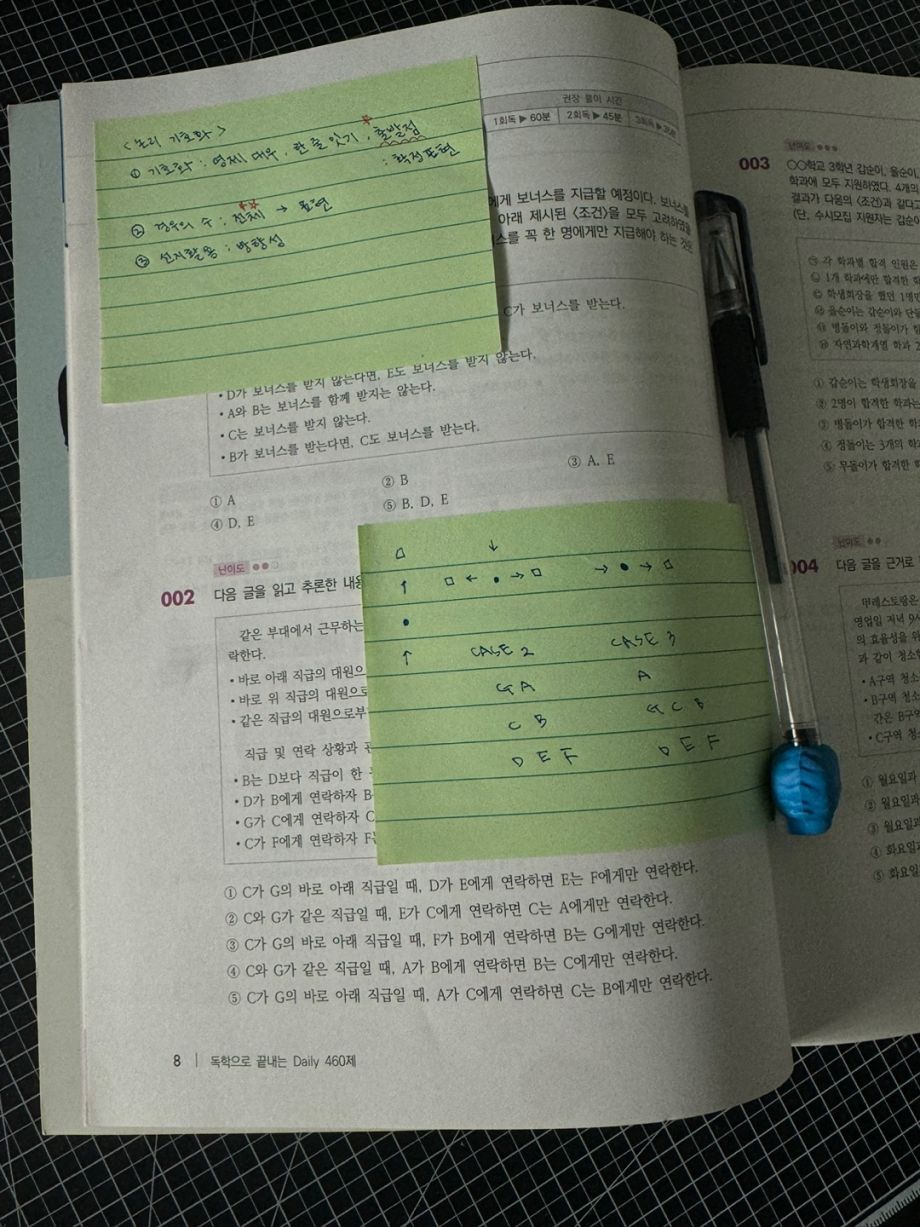 <논리 기호화>
① 기호화 : 명제, 대우, 한 줄 잇기, 출발점
: 확정표현
② 경우의 수 : 전제 → 표현
③ 선지활용 : 방향성
권장 풀이 시간
1회독 ▶ 60분 2회독 ▶ 45분 3회독 ▶
에게 보너스를 지급할 예정이다. 보너스를
아래 제시된 <조건>을 모두 고려하였을
스를 꼭 한 명에게만 지급해야 하는 것은
C가 보너스를 받는다.
• D가 보너스를 받지 않는다면, E도 보너스를 받지 않는다.
• A와 B는 보너스를 함께 받지는 않는다.
• C는 보너스를 받지 않는다.
• B가 보너스를 받는다면, C도 보너스를 받는다.
① A ② B ③ A, E
④ D, E ⑤ B, D, E
난이도
002 다음 글을 읽고 추론한 내용
같은 부대에서 근무하는
락한다.
• 바로 아래 직급의 대원으
• 바로 위 직급의 대원으로
• 같은 직급의 대원으로부
직급 및 연락 상황과 관
• B는 D보다 직급이 한
• D가 B에게 연락하자 B
• G가 C에게 연락하자 C
• C가 F에게 연락하자 F는
CASE 2 CASE 3
G A A
C B G C B
D E F D E F
① C가 G의 바로 아래 직급일 때, D가 E에게 연락하면 E는 F에게만 연락한다.
② C와 G가 같은 직급일 때, E가 C에게 연락하면 C는 A에게만 연락한다.
③ C가 G의 바로 아래 직급일 때, F가 B에게 연락하면 B는 G에게만 연락한다.
④ C와 G가 같은 직급일 때, A가 B에게 연락하면 B는 C에게만 연락한다.
⑤ C가 G의 바로 아래 직급일 때, A가 C에게 연락하면 C는 B에게만 연락한다.
8 | 독학으로 끝내는 Daily 460제
난이도
003 ○○학교 3학년 갑순이, 을순이,
학과에 모두 지원하였다. 4개의
결과가 다음의 <조건>과 같다고
(단, 수시모집 지원자는 갑순이
㉠ 각 학과별 합격 인원은
㉡ 1개 학과에만 합격한 학
㉢ 학생회장을 했던 1명만
㉣ 을순이는 갑순이와 단둘
㉤ 병돌이와 정돌이가 합
㉥ 자연과학계열 학과 2
① 갑순이는 학생회장을
② 2명이 합격한 학과는
③ 병돌이가 합격한 학과
④ 정돌이는 3개의 학과
⑤ 무돌이가 합격한 학
난이도
004 다음 글을 근거로
甲레스토랑은
영업일 저녁 9시
의 효율성을 위
과 같이 청소한
• A구역 청소
• B구역 청소
간은 B구역
• C구역 청소
① 월요일과
② 월요일과
③ 월요일과
④ 화요일과
⑤ 화요일